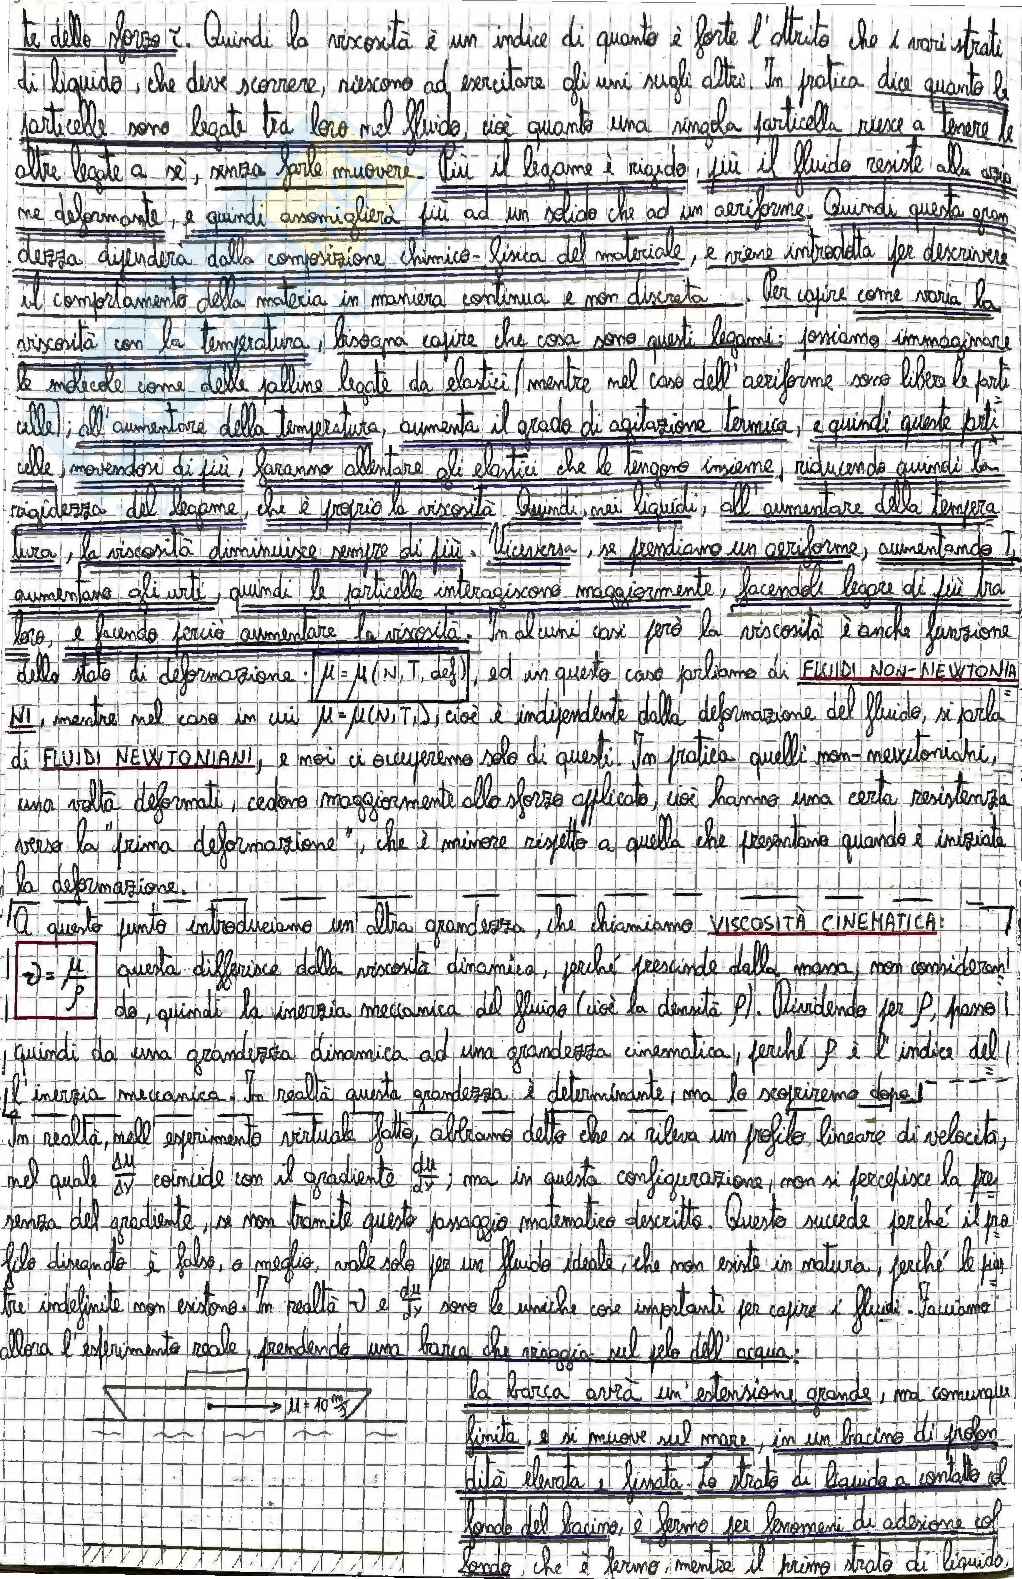 te dello sforzo τ. Quindi la viscosità è un indice di quanto è forte l'attrito che i vari strati
di liquido, che deve scorrere, riescono ad esercitare gli uni sugli altri. In pratica dice quanto le
particelle sono legate tra loro nel fluido, cioè quanto una singola particella riesce a tenere le
altre legate a sè, senza farle muovere. Più il legame è rigido, più il fluido resiste alla azio
ne deformante, e quindi assomiglierà più ad un solido che ad un aeriforme. Quindi questa gran
dezza dipenderà dalla composizione chimico-fisica del materiale, e viene introdotta per descrivere
il comportamento della materia in maniera continua e non discreta. Per capire come varia la
viscosità con la temperatura, bisogna capire che cosa sono questi legami: possiamo immaginare
le molecole come delle palline legate da elastici (mentre nel caso dell'aeriforme sono libere le parti
celle); all'aumentare della temperatura, aumenta il grado di agitazione termica, e quindi queste parti
celle, movendosi di più, faranno allentare gli elastici che le tengono insieme, riducendo quindi la
ragidezza del legame, che è proprio la viscosità. Quindi, nei liquidi, all'aumentare della tempera
tura, la viscosità diminuisce sempre di più. Viceversa, se prendiamo un aeriforme, aumentando T,
aumentano gli urti, quindi le particelle interagiscono maggiormente, facendole legare di più tra
loro, e facendo perciò aumentare la viscosità. In alcuni casi però la viscosità è anche funzione
dello stato di deformazione: μ=μ(N,T,def), ed in questo caso parliamo di FLUIDI NON-NEWTONIA
NI, mentre nel caso in cui μ=μ(N,T,), cioè è indipendente dalla deformazione del fluido, si parla
di FLUIDI NEWTONIANI, e noi ci occuperemo solo di questi. In pratica quelli non-newtoniani,
una volta deformati, cedono maggiormente allo sforzo applicato, cioè hanno una certa resistenza
verso la "prima deformazione", che è minore rispetto a quella che presentano quando è iniziata
la deformazione.
A questo punto introduciamo un'altra grandezza, che chiamiamo VISCOSITÀ CINEMATICA:
ν=μ/ρ questa differisce dalla viscosità dinamica, perché prescinde dalla massa, non consideran
do, quindi la inerzia meccanica del fluido (cioè la densità ρ). Dividendo per ρ, passo
quindi da una grandezza dinamica ad una grandezza cinematica, perché ρ è l'indice del
l'inerzia meccanica. In realtà questa grandezza è determinante, ma lo scopriremo dopo.
In realtà, nell'esperimento virtuale fatto, abbiamo detto che si rileva un profilo lineare di velocità,
nel quale Δu/Δy coincide con il gradiente du/dy; ma in questa configurazione, non si percepisce la pre
senza del gradiente, se non tramite questo passaggio matematico descritto. Questo succede perché il pro
filo disegnato è falso, o meglio, vale solo per un fluido ideale, che non esiste in natura, perché le pias
tre indefinite non esistono. In realtà ν e du/dy sono le uniche cose importanti per capire i fluidi. Facciamo
allora l'esperimento reale, prendendo una barca che viaggia sul pelo dell'acqua:
u=10 m/s
la barca avrà un'estensione grande, ma comunque
finita, e si muove sul mare, in un bacino di profon
dità elevata e fissata. Lo strato di liquido a contatto col
fondo del bacino, è fermo per fenomeni di adesione col
fondo, che è fermo, mentre il primo strato di liquido,